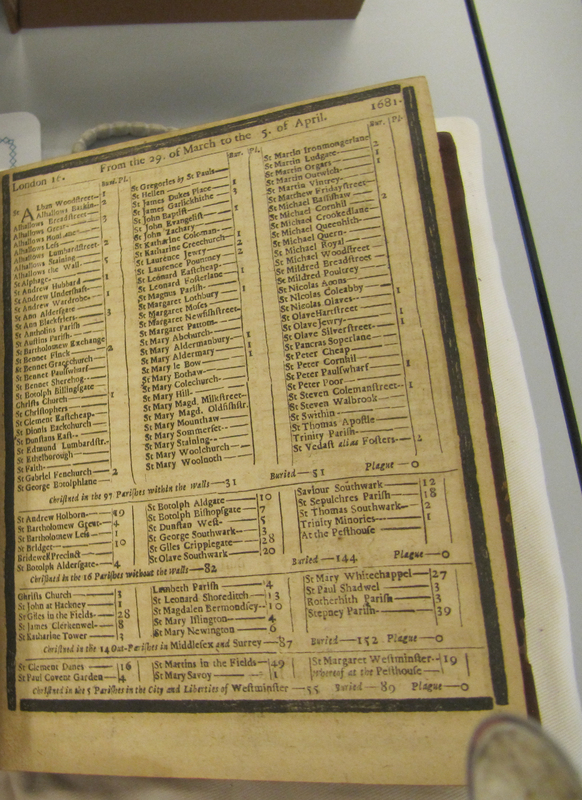 London 16. From the 29. of March to the 5. of April. 1681.
Bur. Pl.
St Alban Woodstreet
Alhallows Barkin
Alhallows Breadstreet
Alhallows Great
Alhallows Lumbardstreet
Alhallows Staining
Alhallows the Wall
St Alphage
St Andrew Hubbard
St Andrew Undershaft
St Andrew Wardrobe
St Ann Aldersgate
St Ann Blackfriers
St Antholins Parish
St Austins Parish
St Bartholomew Exchange
St Bennet Finck
St Bennet Gracechurch
St Bennet Paulswharf
St Bennet Sherehog
St Botolph Billingsgate
Christs Church
St Christophers
St Clement Eastcheap
St Dionis Backchurch
St Dunstans East
St Edmund Lumbardstr.
St Ethelborough
St Faith
St Gabriel Fenchurch 2
St George Botolphlane
Bur. Pl.
St Gregories by St Pauls
St Hellen
St James Dukes Place
St James Garlickhithe
St John Baptist
St John Evangelist
St John Zachary
St Katharine Coleman
St Katharine Creechurch
St Laurence Jewry
St Laurence Pountney
St Leonard Eastcheap
St Leonard Fosterlane
St Magnus Parish
St Margaret Lothbury
St Margaret Moses
St Margaret Newfishstreet
St Margaret Pattons
St Mary Abchurch
St Mary Aldermanbury
St Mary Aldermary
St Mary le Bow
St Mary Bothaw
St Mary Colechurch
St Mary Hill
St Mary Magd. Milkstreet
St Mary Magd. Oldfishstr.
St Mary Mounthaw
St Mary Sommerset
St Mary Staining
St Mary Woolchurch
St Mary Woolnoth
Bur. Pl.
St Martin Ironmongerlane
St Martin Ludgate
St Martin Orgars
St Martin Outwich
St Martin Vintrey
St Matthew Fridaystreet
St Michael Bassishaw
St Michael Cornhil
St Michael Crookedlane
St Michael Queenhith
St Michael Quern
St Michael Royal
St Michael Woodstreet
St Mildred Breadstreet
St Mildred Poultrey
St Nicolas Acons
St Nicolas Coleabby
St Nicolas Olaves
St Olave Hartstreet
St Olave Jewry
St Olave Silverstreet
St Pancras Soperlane
St Peter Cheap
St Peter Cornhil
St Peter Paulswharf
St Peter Poor
St Steven Colemanstreet
St Steven Walbrook
St Swithin
St Thomas Apostle
Trinity Parish
St Vedast alias Fosters
Christned in the 97 Parishes within the Walls 31 Buried 51 Plague 0
St Andrew Holborn
St Bartholomew Great 4
St Bartholomew Less 1
St Bridget 10
Bridewel Precinct
St Botolph Aldersgate 4
St Botolph Aldgate 10
St Botolph Bishopsgate 7
St Dunstan West 5
St George Southwark 3
St Giles Cripplegate 28
St Olave Southwark 20
Saviour Southwark 12
St Sepulchres Parish 18
St Thomas Southwark 2
Trinity Minories 1
At the Pesthouse
Christned in the 16 Parishes without the Walls 82 Buried 144 Plague 0
Christs Church 3
St John at Hackney 1
St Giles in the Fields 28
St James Clerkenwel 8
St Katharine Tower 3
Lambeth Parish 4
St Leonard Shoreditch 13
St Magdalen Bermondsey 10
St Mary Islington 4
St Mary Newington 6
St Mary Whitechappel 27
St Paul Shadwel 3
Rotherhith Parish 3
Stepney Parish 39
Christned in the 14 Out-Parishes in Middlesex and Surrey 87 Buried 152 Plague 0
St Clement Danes 16
St Paul Covent Garden 4
St Martins in the Fields 49
St Mary Savoy 1
St Margaret Westminster 19
whereof at the Pesthouse
Christned in the 5 Parishes in the City and Liberties of Westminster 55 Buried 89 Plague 0